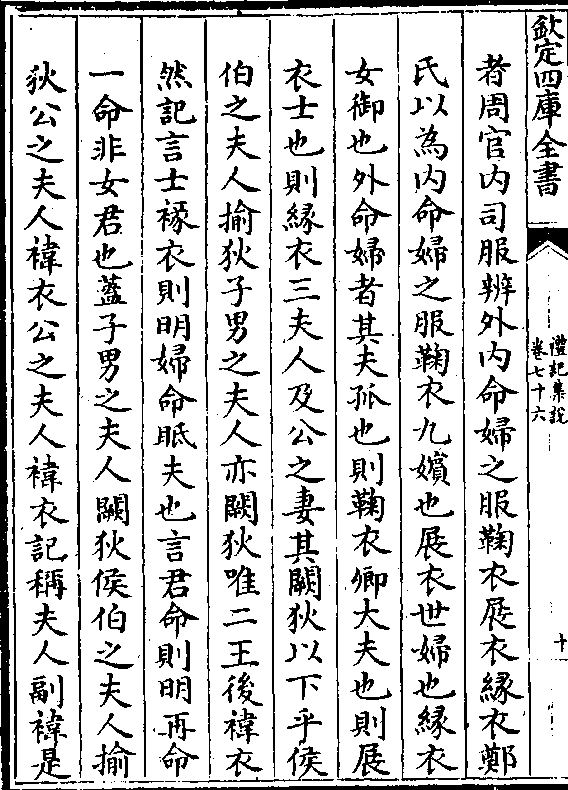 欽定四庫全書
禮記集說
卷七十六
十
者周官内司服辨外内命婦之服鞠衣展衣緣衣鄭
氏以為内命婦之服鞠衣九嬪也展衣世婦也緣衣
女御也外命婦者其夫孤也則鞠衣卿大夫也則展
衣士也則緣衣三夫人及公之妻其闕狄以下乎侯
伯之夫人揄狄子男之夫人亦闕狄唯二王後褘衣
然記言士褖衣則明婦命眡夫也言君命則明再命
一命非女君也蓋子男之夫人闕狄侯伯之夫人揄
狄公之夫人褘衣公之夫人褘衣記稱夫人副褘是